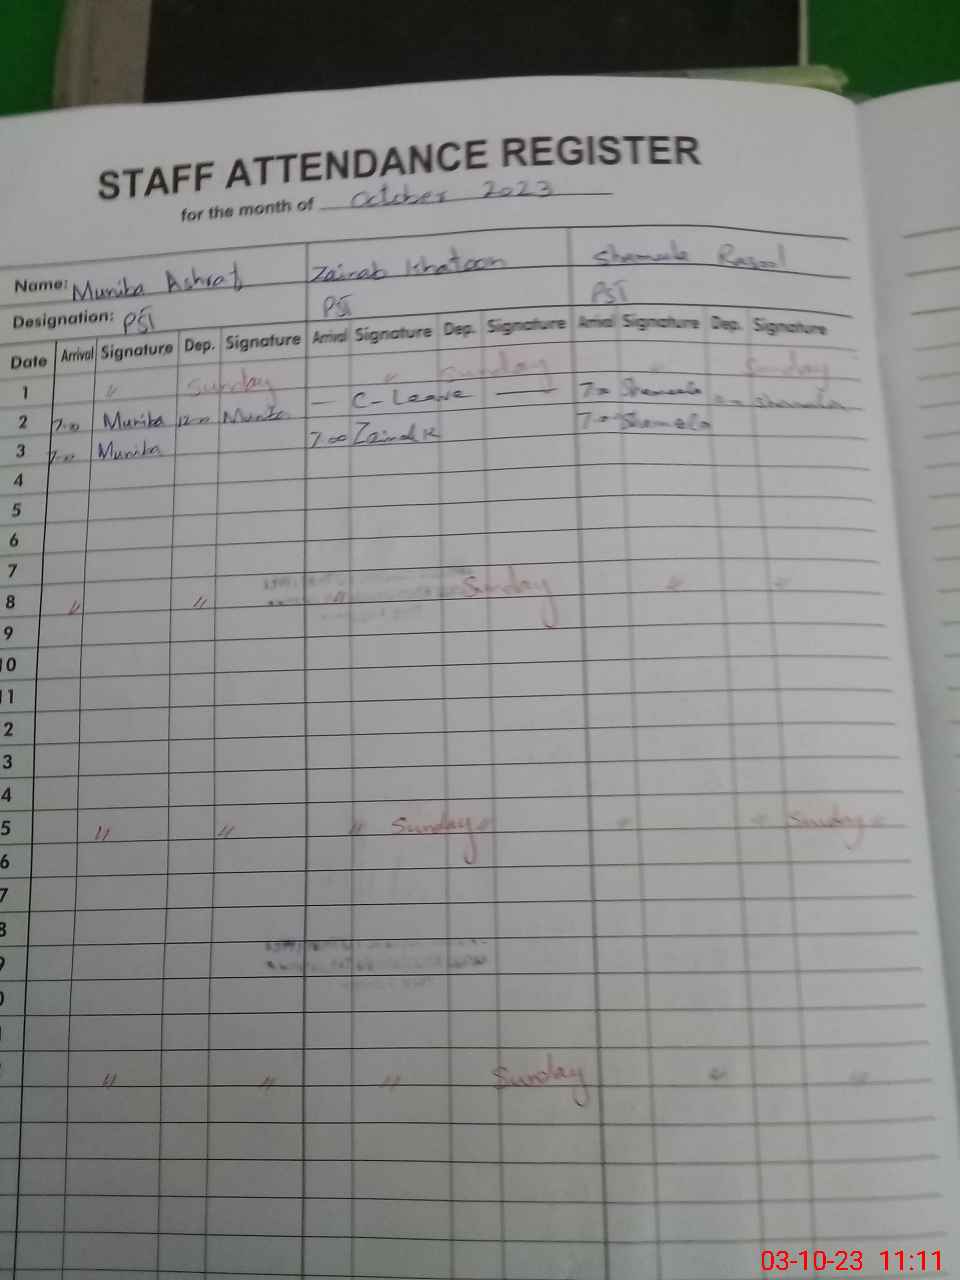 STAFF ATTENDANCE REGISTER
for the month of October 2023
Name: Muniba Ashraf Zainab Khatoon Shameela Rasool
Designation: PST PST PST
Date Arrival Signature Dep. Signature Arrival Signature Dep. Signature Arrival Signature Dep. Signature
1 " Sunday " Sunday " Sunday
2 7:00 Muniba 12:00 Muniba — C-Leave — 7:00 Shameela Shameela
3 7:00 Muniba 7:00 Zainab K 7:00 Shameela
4
5
6
7
8 " " " Sunday " "
9
10
11
2
3
4
5 " " " Sunday " " " Sunday "
6
7
8
9
0
" " " Sunday " "
03-10-23 11:11